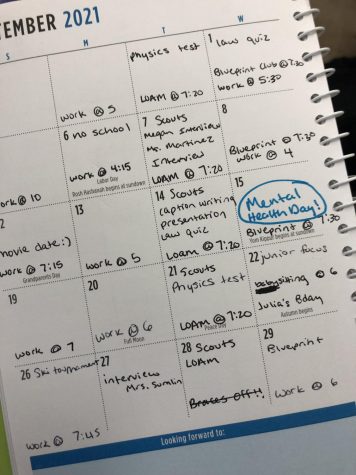 TEMBER 2021
S M T W
physics test
LOAM @ 7:20
work @ 5
1 law quiz
Blueprint Club @ 7:30
work @ 5:30
work @ 10
6 no school
work @ 4:15
Labor Day
Rosh Hashanah begins at sundown
7 Scouts
Megan Interview
Ms. Martinez
Interview
LOAM @ 7:20
8
Blueprint @ 7:30
work @ 4
2
movie date:)
work @ 7:15
Grandparents Day
13
work @ 5
14 Scouts
caption writing
presentation
law quiz
LOAM @ 7:20
15
Mental
Health Day!
Blueprint @ 7:30
Yom Kippur begins at sundown
19
work @ 7
20
work @ 6
Full Moon
21 Scouts
Physics test
LOAM @ 7:20
Peace Day
22 junior focus
babysitting @ 6
Julia's Bday
Autumn begins
26 Ski tournament
work @ 7:45
27
interview
Mrs. Sumlin
28 Scouts
LOAM
Braces Off!!
29
Blueprint
work @ 6
Looking forward to: